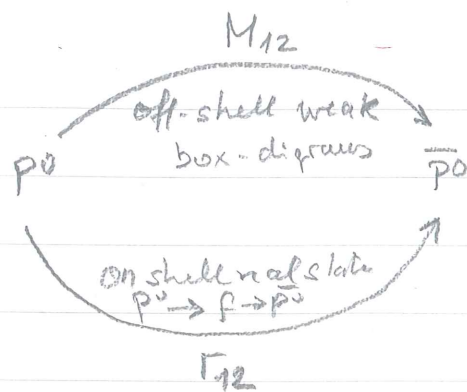 M12
off-shell weak
box-digrams
P0 P̅0
on shell real state
P0 → f → P̅0
Γ12